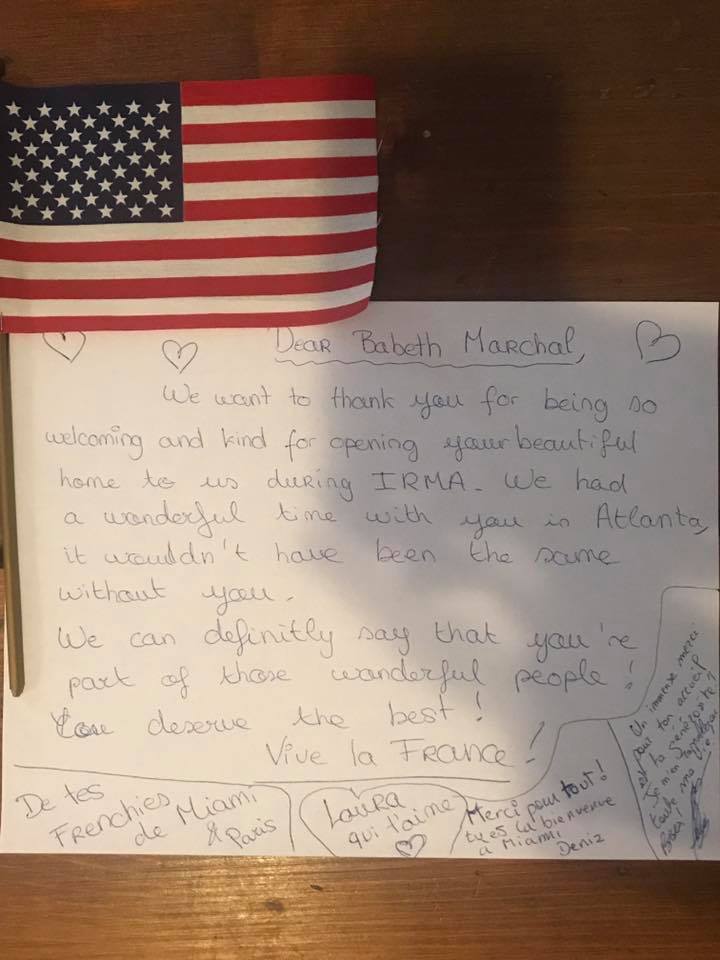 Dear Babeth Marchal,
We want to thank you for being so
welcoming and kind for opening your beautiful
home to us during IRMA. We had
a wonderful time with you in Atlanta,
it wouldn't have been the same
without you.
We can definitly say that you're
part of those wonderful people!
You deserve the best!
Vive la France!
De tes
Frenchies
de Miami
& Paris
Laura
qui t'aime
Merci pour tout!
tu es la bienvenue
à Miami
Deniz
Un immense merci
pour ton accueil
et ta générosité!
Je m'en rappellerai
toute ma vie